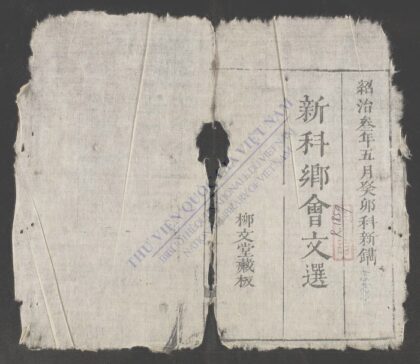 紹治叁年五月癸卯科新鐫
新科鄉會文選
柳文堂藏板
THƯ VIỆN QUỐC GIA VIỆT NAM
BIBLIOTHÈQUE NATIONALE DU VIETNAM
NATIONAL LIBRARY OF VIETNAM